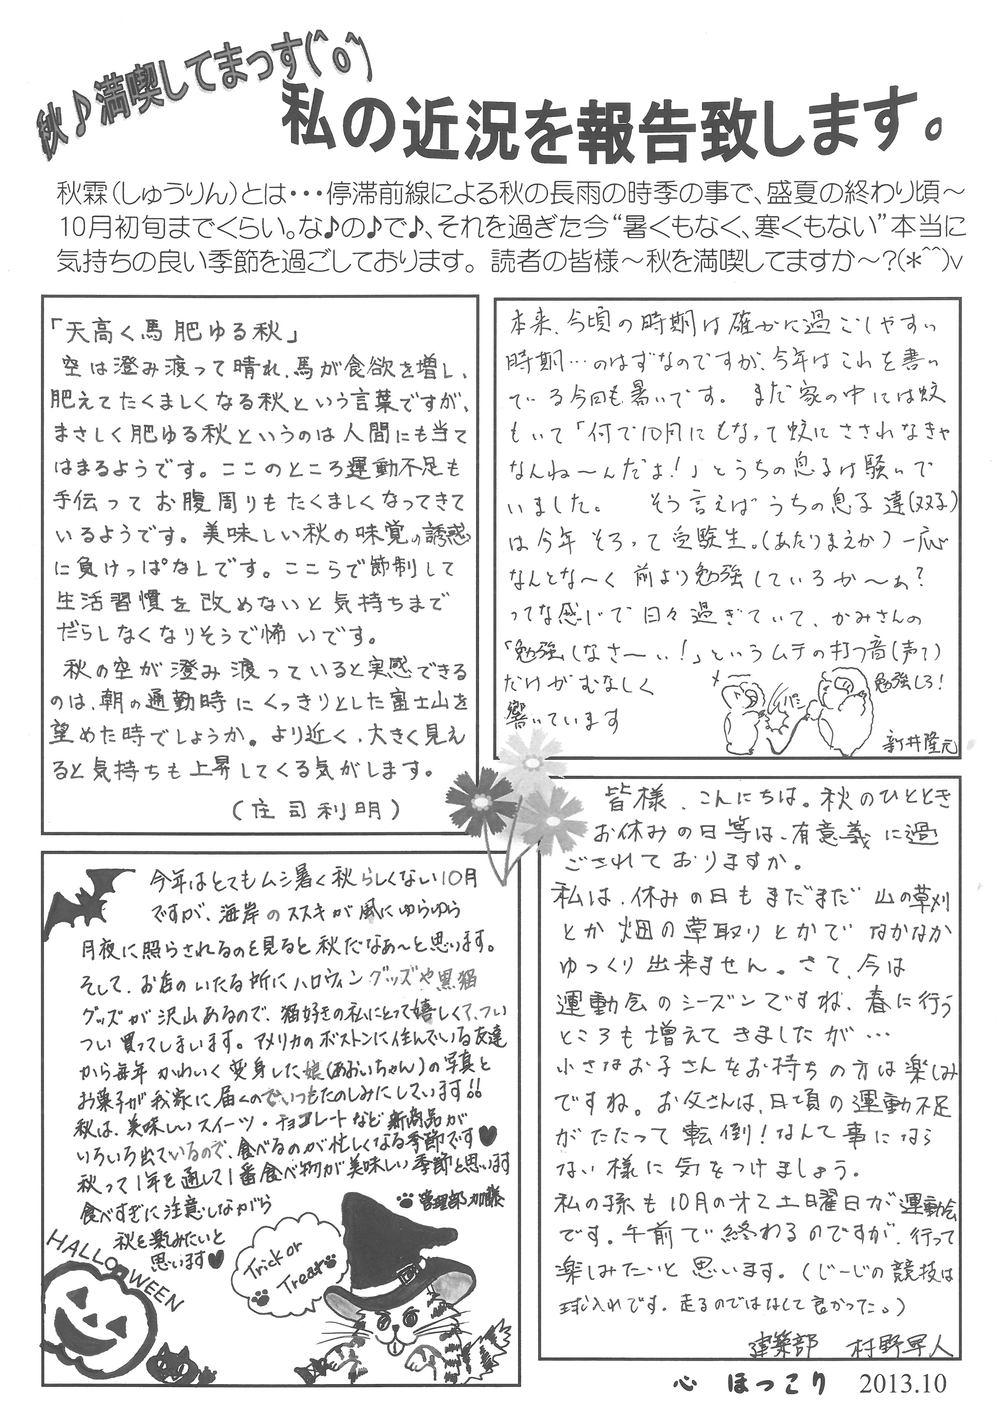 秋♪満喫してまっす(^o^)
私の近況を報告致します。
秋霖(しゅうりん)とは・・・停滞前線による秋の長雨の時季の事で、盛夏の終わり頃～
10月初旬までくらい。な♪の♪で♪、それを過ぎた今“暑くもなく、寒くもない”本当に
気持ちの良い季節を過ごしております。 読者の皆様～秋を満喫してますか～?(*^^)v
「天高く馬肥ゆる秋」
空は澄み渡って晴れ、馬が食欲を増し、
肥えてたくましくなる秋という言葉ですが、
まさしく肥ゆる秋というのは人間にも当て
はまるようです。ここのところ運動不足も
手伝ってお腹周りもたくましくなってきて
いるようです。美味しい秋の味覚の誘惑
に負けっぱなしです。ここらで節制して
生活習慣を改めないと気持ちまで
だらしなくなりそうで怖いです。
秋の空が澄み渡っていると実感できる
のは、朝の通勤時にくっきりとした富士山を
望めた時でしょうか。より近く、大きく見え
ると気持ちも上昇してくる気がします。
(庄司利明)
本来、今頃の時期は確かに過ごしやすい
時期…のはずなのですが、今年はこれを書い
ている今日も暑いです。まだ家の中には蚊
もいて「何で10月にもなって蚊にさされなきゃ
なんね〜んだよ!」とうちの息子は騒いで
いました。 そう言えばうちの息子達(双子)
は今年そろって受験生。(あたりまえか)一応
なんとな〜く前より勉強しているか〜ぁ?
ってな感じで日々過ぎていて、かみさんの
「勉強しなさ〜い!」というムチの打つ音(声?)
だけがむなしく
響いています
勉強しろ!
新井隆元
今年はとてもムシ暑く秋らしくない10月
ですが、海岸のススキが風にゆらゆら
月夜に照らされるのを見ると秋だなぁ〜と思います。
そして、お店のいたる所にハロウィングッズや黒猫
グッズが沢山あるので、猫好きの私にとって嬉しくて、つい
つい買ってしまいます。アメリカのボストンに住んでいる友達
から毎年かわいく変身した娘(あおいちゃん)の写真と
お菓子が我家に届くのでいつもたのしみにしています!!
秋は、美味しいスイーツ・チョコレートなど新商品が
いろいろ出ているので、食べるのが忙しくなる季節です♥
秋って1年を通して1番食べ物が美味しい季節と思います
食べすぎに注意しながら
秋を楽しみたいと
思います♥
管理部 加藤
HALLOWEEN
Trick or
Treat
皆様、こんにちは。秋のひととき
お休みの日等は、有意義に過
ごされておりますか。
私は、休みの日もまだまだ山の草刈
とか畑の草取りとかでなかなか
ゆっくり出来ません。さて、今は
運動会のシーズンですね、春に行う
ところも増えてきましたが…
小さなお子さんをお持ちの方は楽しみ
ですね。お父さんは、日頃の運動不足
がたたって転倒!なんて事になら
ない様に気をつけましょう。
私の孫も10月の才2土曜日が運動会
です。午前で終わるのですが、行って
楽しみたいと思います。(じーじの競技は
球入れです。走るのではなくて良かった。)
建築部 村野昇人
心 ほっこり 2013.10